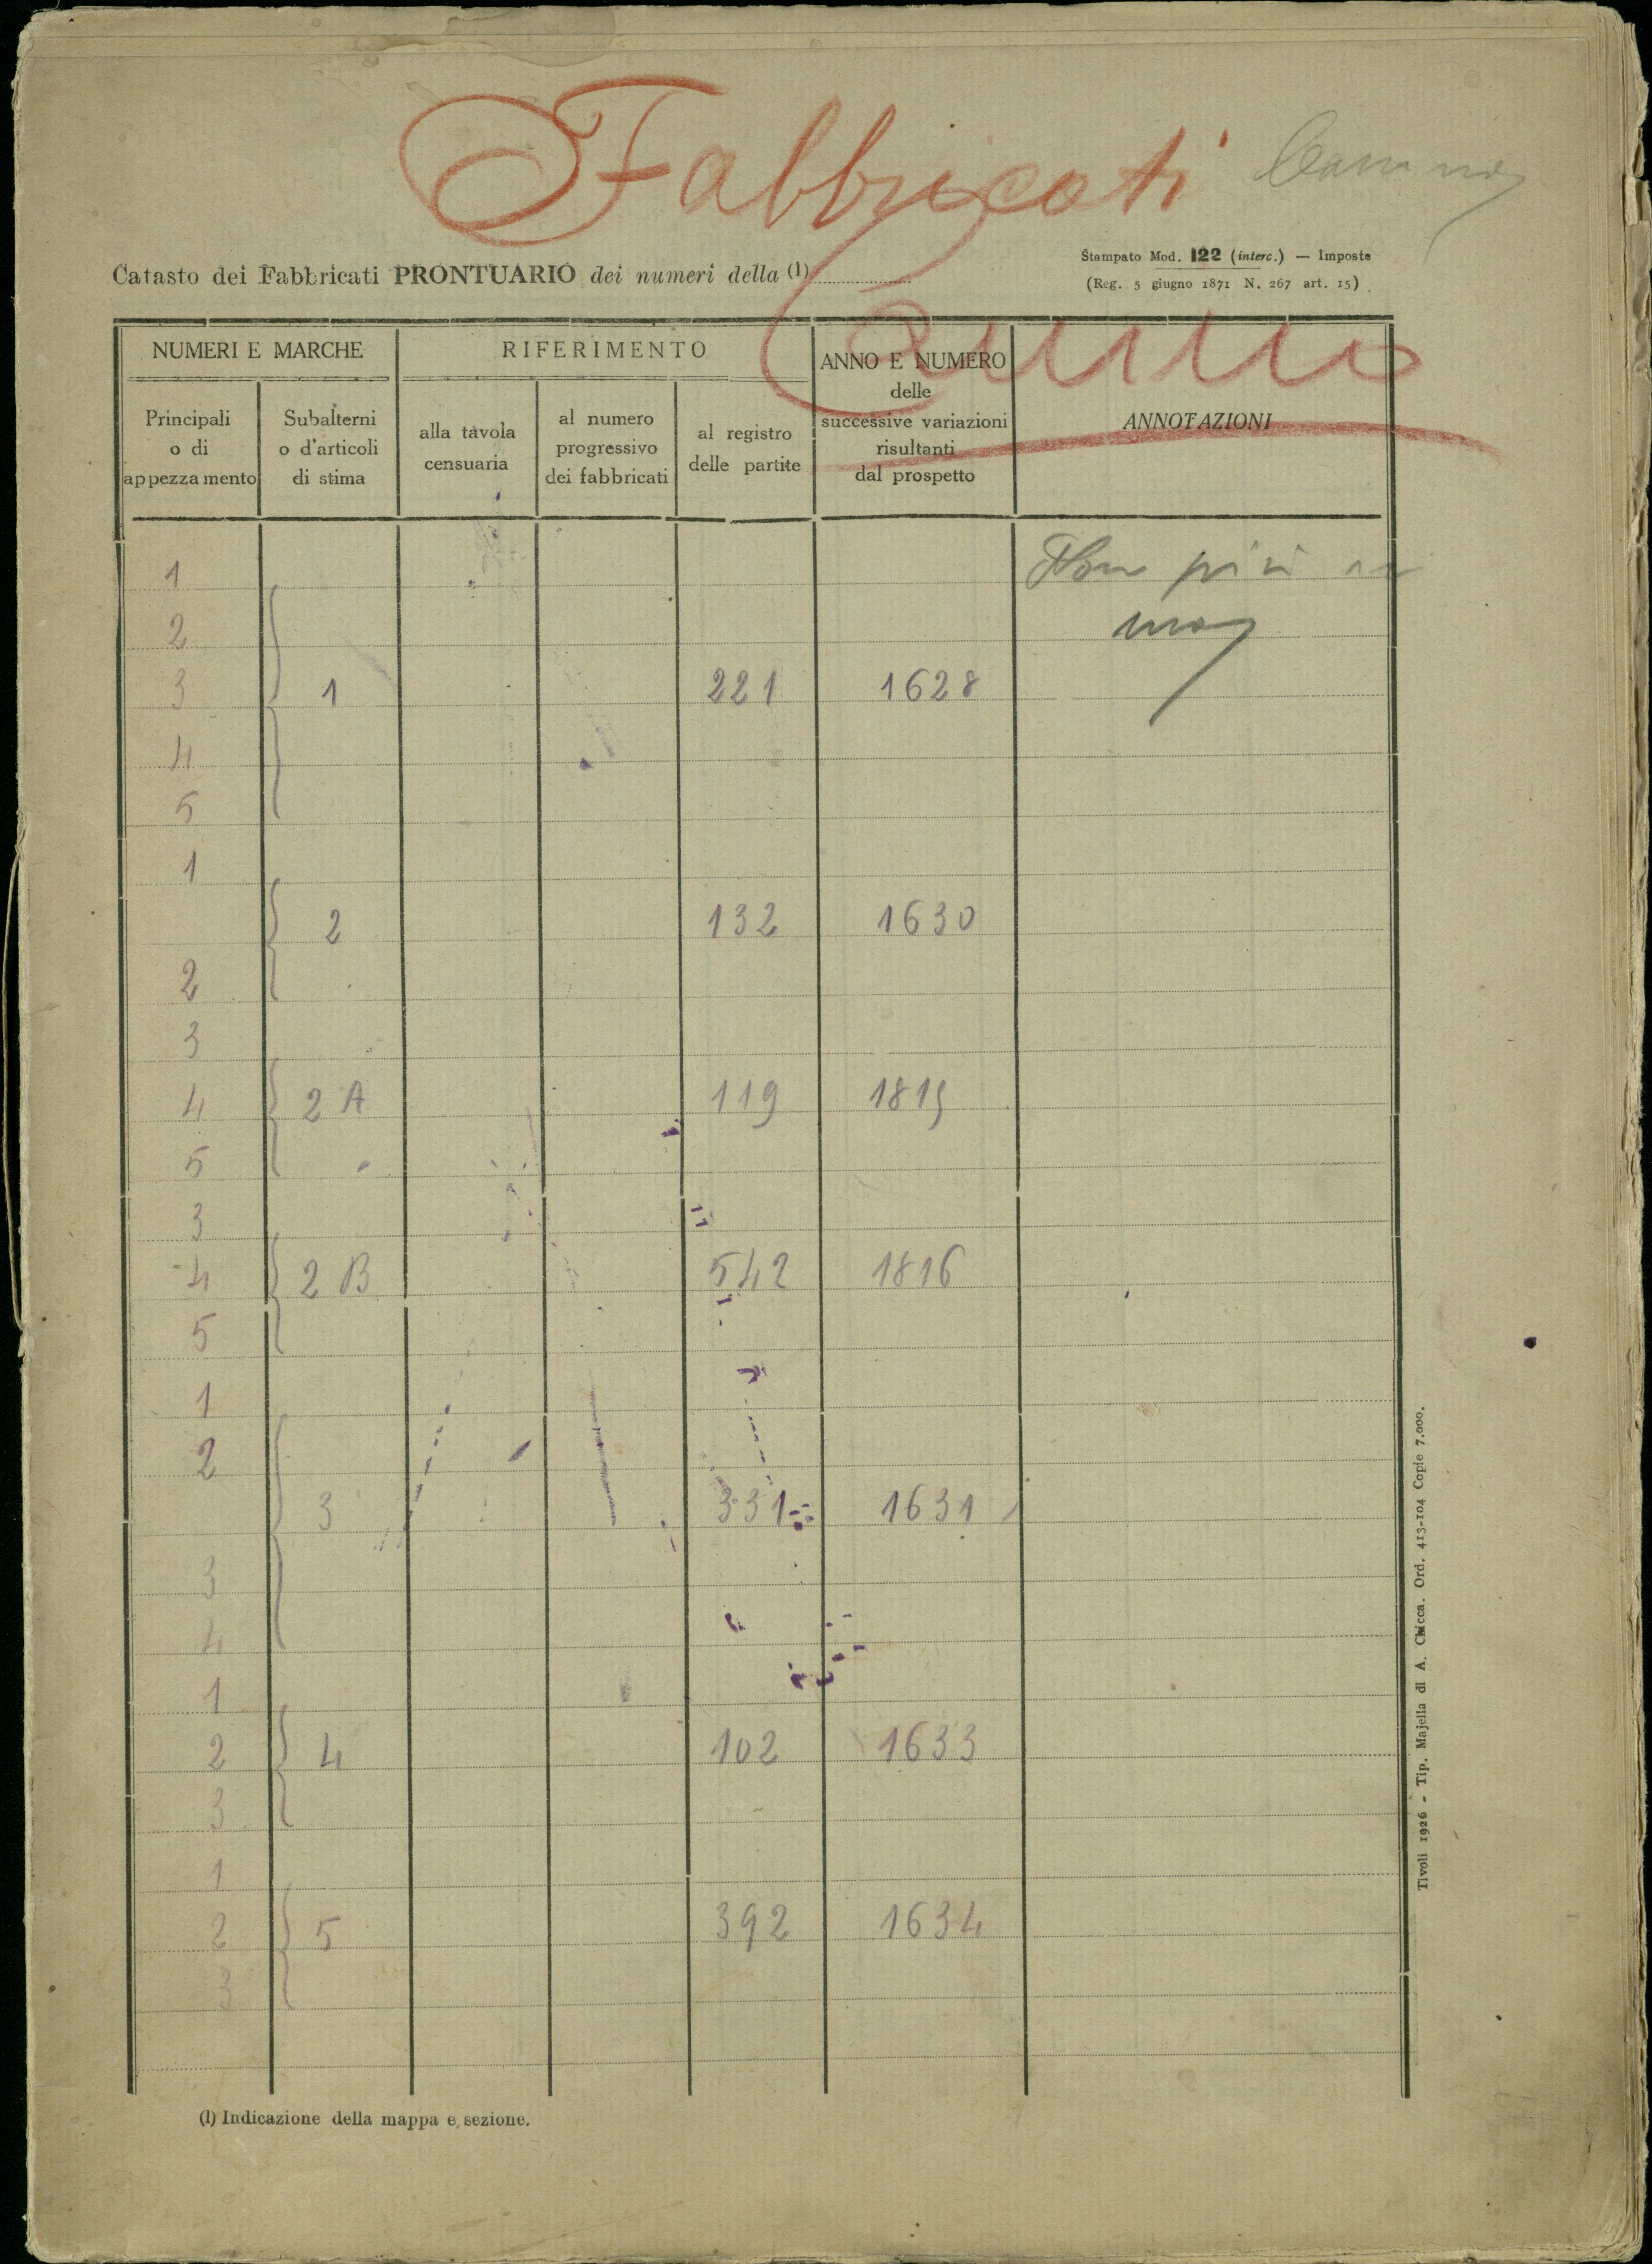 Fabbricati
Catasto dei Fabbricati PRONTUARIO dei numeri della (1)
Stampato Mod. 122 (interc.) — Imposte
(Reg. 5 giugno 1871 N. 267 art. 15)
NUMERI E MARCHE
RIFERIMENTO
ANNO E NUMERO
delle
successive variazioni
risultanti
dal prospetto
ANNOTAZIONI
Principali
o di
appezzamento
Subalterni
o d'articoli
di stima
alla tavola
censuaria
al numero
progressivo
dei fabbricati
al registro
delle partite
1
2
3 1 221 1628
4
5
1
2 132 1630
2
3
4 2 A 119 1815
5
3
4 2 B 542 1816
5
1
2
3 331 1631
3
4
1
2 4 102 1633
3
1
2 5 392 1634
3
(1) Indicazione della mappa e sezione.
Tivoli 1926 - Tip. Majella di A. Chicca. Ord. 413-104 Copie 7.000.